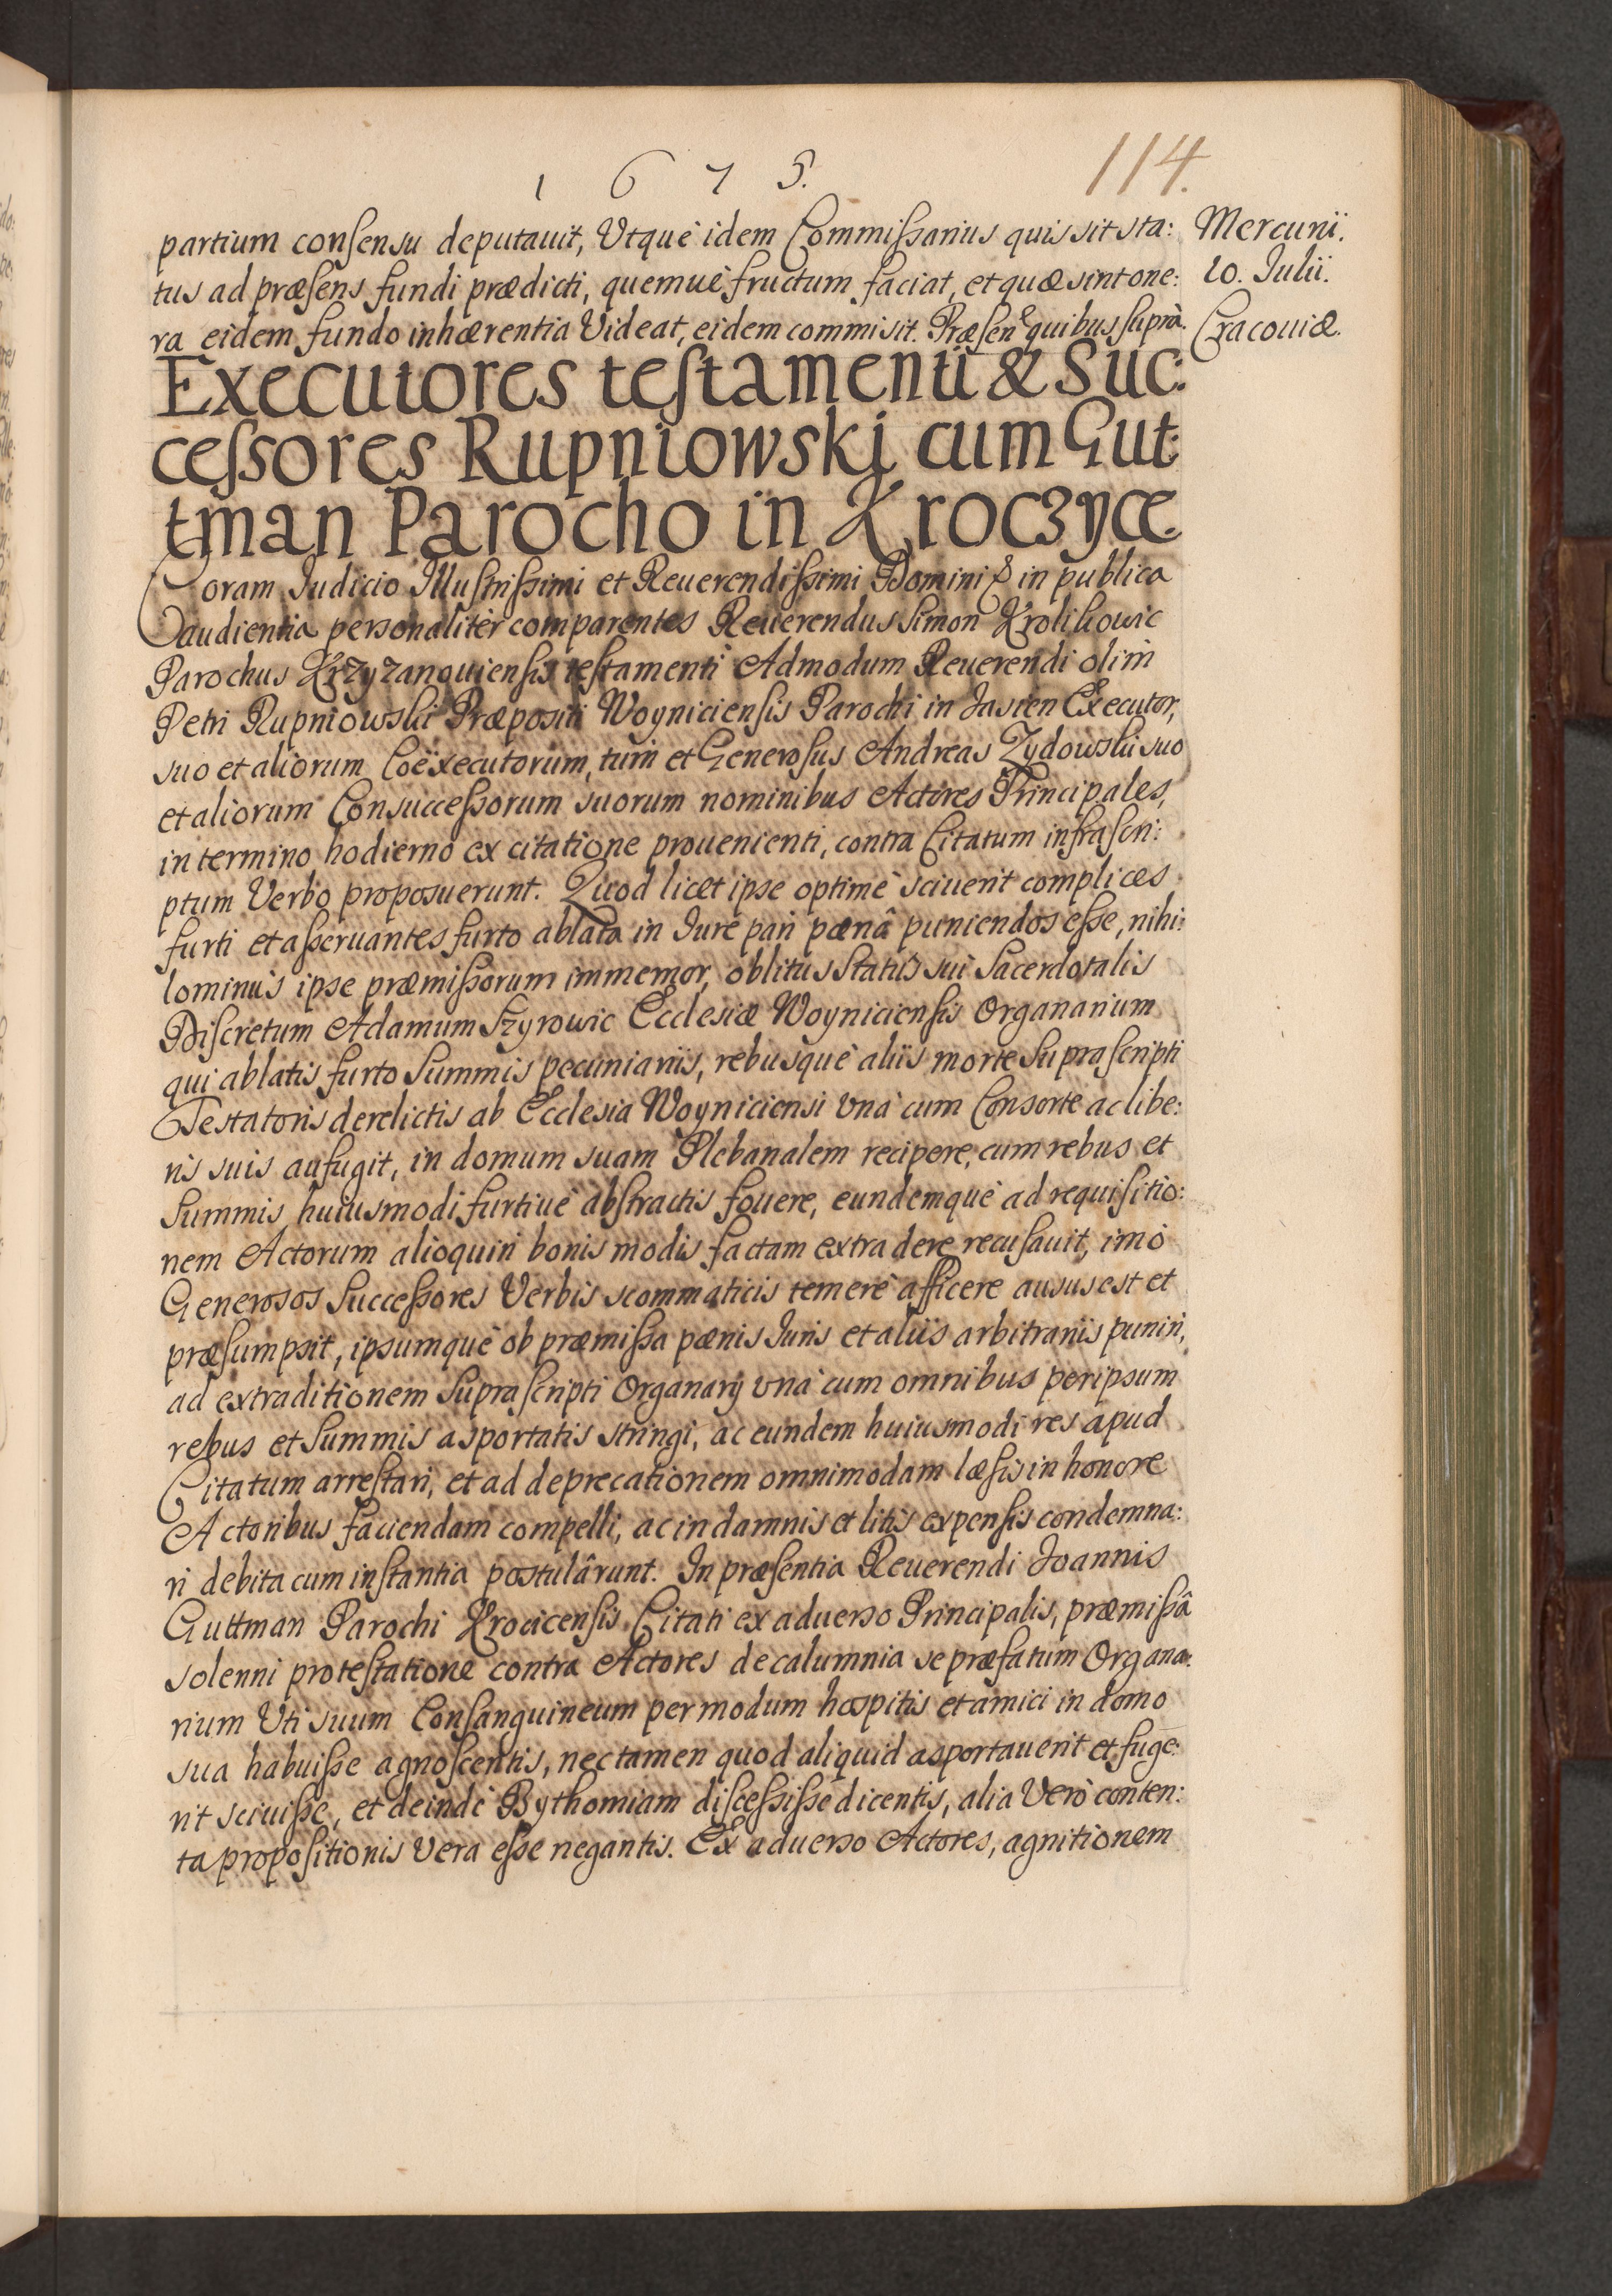 1 6 7 5.
114.
partium consensu deputauit, Vtquè idem Commissarius quis sit sta:
tus ad præsens fundi prædicti, quemuè fructum faciat, et quæ sint one:
ra eidem fundo inhærentia Videat, eidem commisit. Præsen& quibus suprà.
Mercurii.
10. Julii.
Cracouiæ.
Executores testamenti & Suc:
cessores Rupniowskj cum Gut:
tman Parocho in Kroczyce.
Coram Judicio Illustrissimi et Reuerendissimi Domini & in publica
audientia personalitèr comparentes Reuerendus Simon Krolikowic
Parochus Krzyzanouiensis testamenti Admodum Reuerendi olim
Petri Rupniowski Præpositi Woyniciensis Parochi in Jasien Executor,
suo et aliorum Coëxecutorum, tum et Generosus Andreas Zydowski suo
et aliorum Consuccessorum suorum nominibus Actores Principales,
in termino hodierno ex citatione prouenienti, contra Citatum infrascri:
ptum Verbo proposuerunt. Quod licet ipse optimè sciuerit complices
furti et asseruantes furto ablata in Jure pari pœnâ puniendos esse, nihi:
lominus ipse præmissorum immemor, oblitus Status sui Sacerdotalis
Discretum Adamum Szyrowic Ecclesiæ Woyniciensis Organarium
qui ablatis furto Summis pecuniariis, rebusquè aliis morte Suprascripti
Testatoris derelictis ab Ecclesia Woyniciensi vnà cum Consorte ac libe:
ris suis aufugit, in domum suam Plebanalem recipere, cum rebus et
Summis huiusmodi furtiuè abstractis fouere, eundemquè ad requisitio:
nem Actorum alioquin bonis modis factam extradere recusauit, imò
Generosos Successores Verbis scommaticis temerè afficere ausus est et
præsumpsit, ipsumquè ob præmissa pœnis Juris et aliis arbitrariis puniri,
ad extraditionem Suprascripti Organarij vnà cum omnibus per ipsum
rebus et Summis asportatis stringi, ac eundem huiusmodi res apud
Citatum arrestari, et ad deprecationem omnimodam læsis in honore
Actoribus faciendam compelli, ac in damnis et litis expensis condemna:
ri debita cum instantia postulârunt. In præsentia Reuerendi Joannis
Guttman Parochi Krocicensis Citati ex aduerso Principalis, præmissâ
solenni protestatione contra Actores de calumnia se præfatum Organa:
rium Vti suum Consanguineum per modum hospitis et amici in domo
sua habuisse agnoscentis, nec tamen quod aliquid asportauerit et fuge:
rit sciuisse, et deindè Bythomiam discessisse dicentis, alia Verò conten:
ta propositionis Vera esse negantis. Ex aduerso Actores, agnitionem